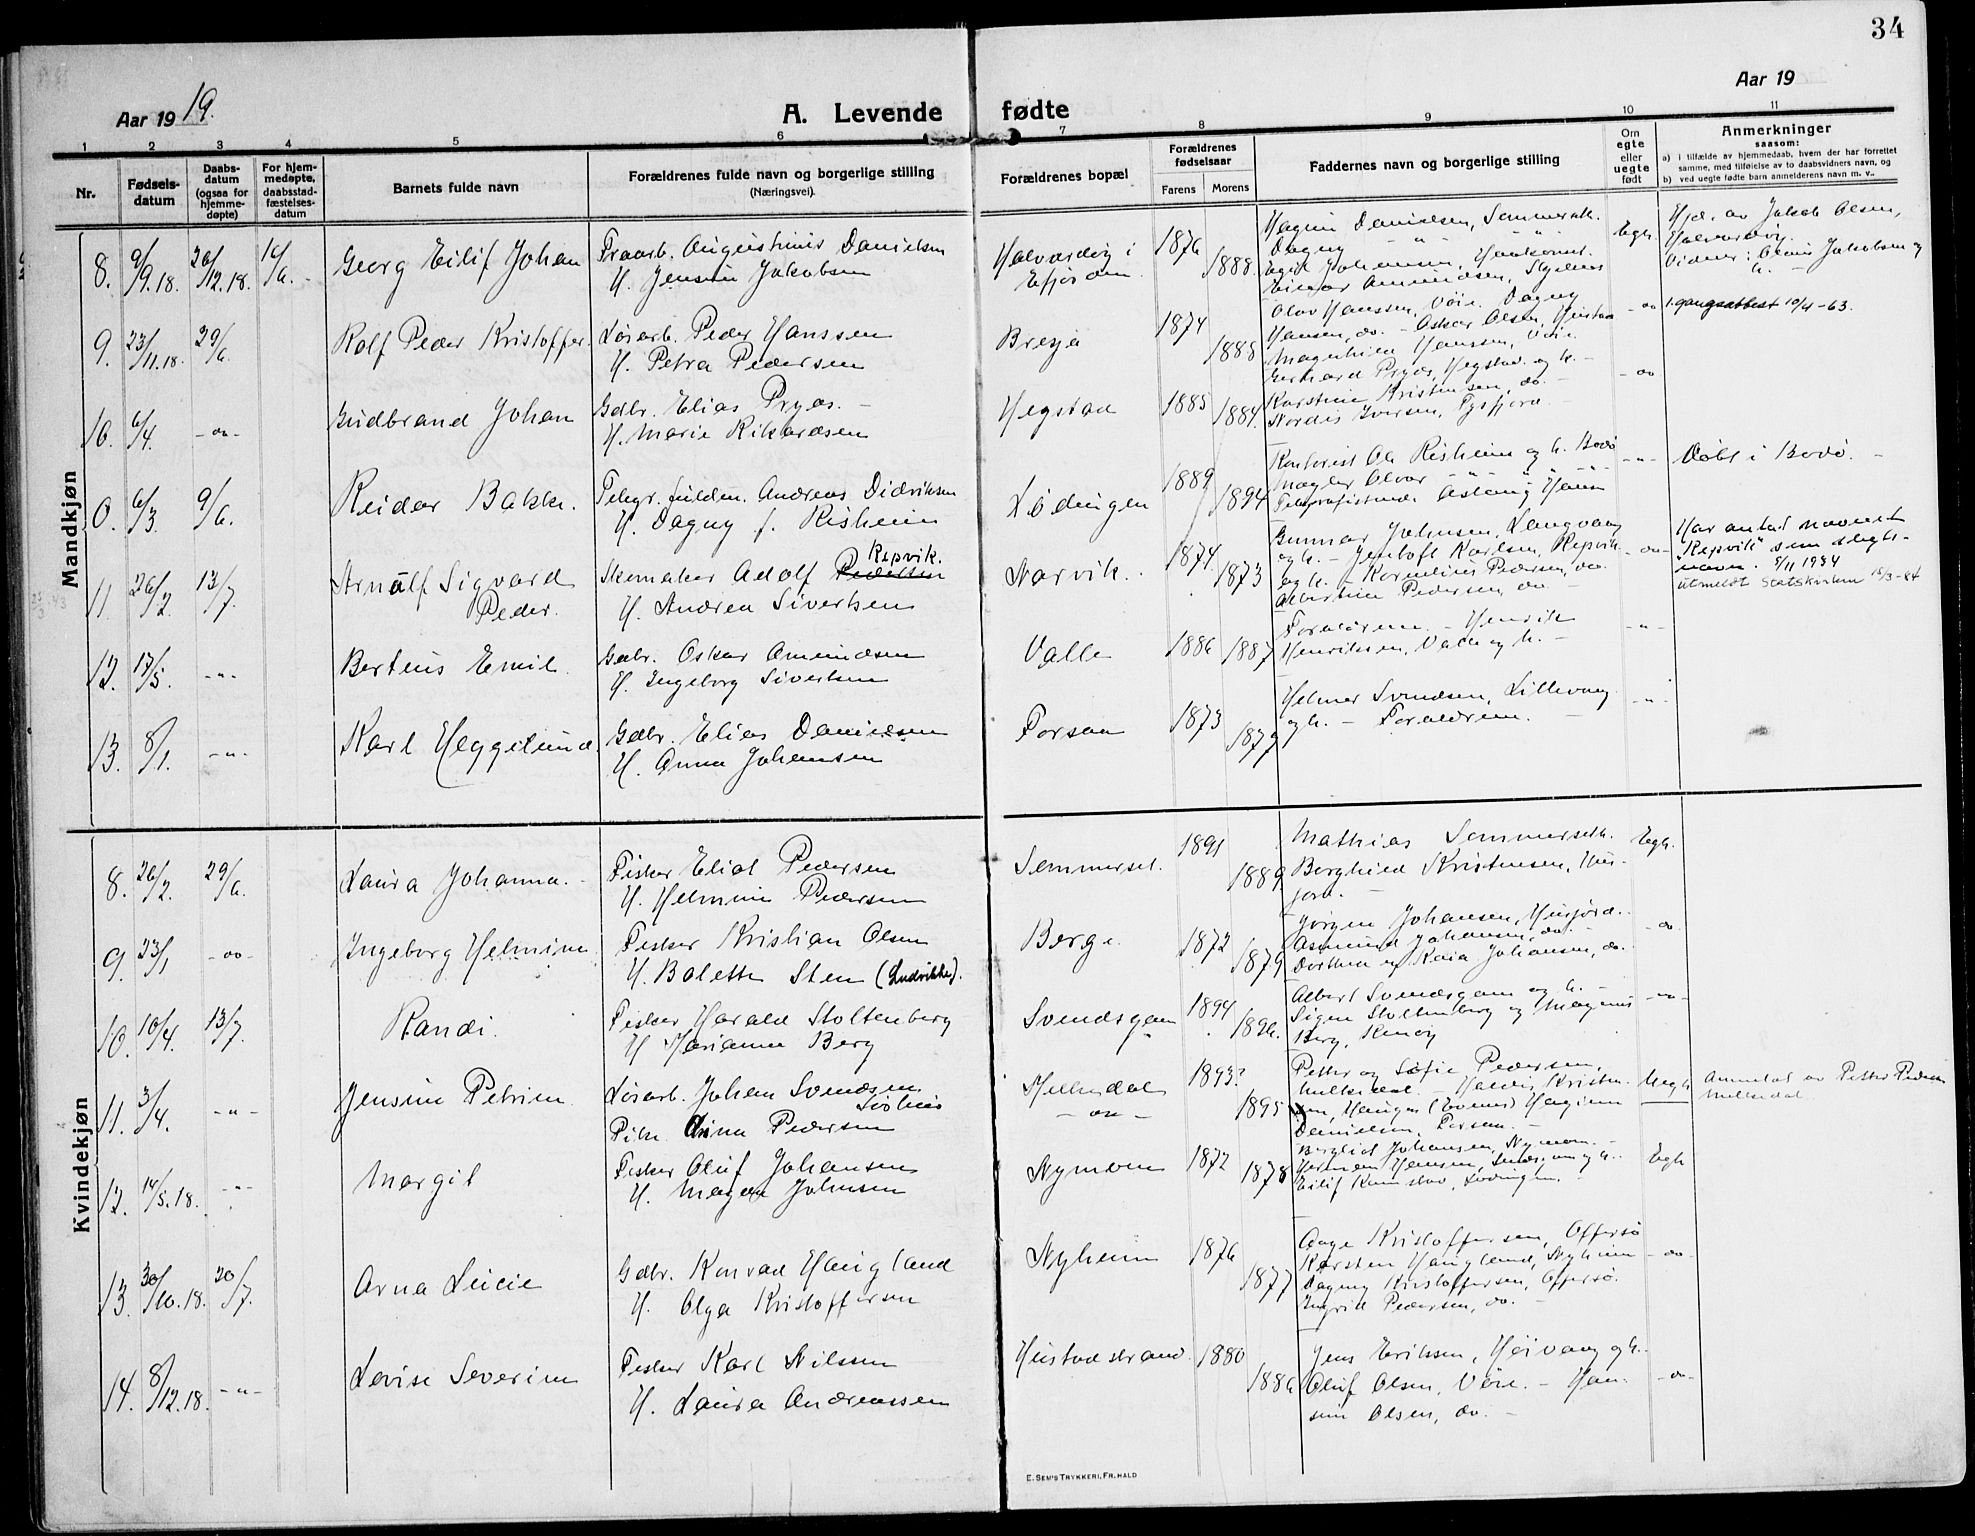 34
Aar 1919.
A. Levende fødte
Aar 19
1 2 3 4 5 6 7 8 9 10 11
Nr.
Fødsels-
datum
Daabs-
datum
(ogsaa for
hjemme-
døpte)
For hjem-
medøpte,
daabsstad-
fæstelses-
datum
Barnets fulde navn
Forældrenes fulde navn og borgerlige stilling
(Næringsvei).
Forældrenes bopæl
Forældrenes
fødselsaar
Farens Morens
Faddernes navn og borgerlige stilling
Om
egte
eller
uegte
født
Anmerkninger
saasom:
a) i tilfælde av hjemmedaab, hvem der har forrettet
samme, med tilføielse av to daabsvidners navn, og
b) ved uegte fødte barn anmelderens navn m. v..
Mandkjøn
8. 9/9.18. 26/12.18. Georg Eilif Johan
Augustinus Danielsen
H. Jensine Jakobsen
Halvardøy i
Efjorden
1876 1888.
Hagen Danielsen, Sommerset.
Dagny " "
Egil Johansen,
Einar Amundsen,
Egte.
Hjd. av Jakob Olsen,
Halvardøy.
Vidner: Olaus Jakobsen og
h. -
9. 23/11.18. 29/6. Rolf Peder Kristoffer.
Løsarb. Peder Hanssen
H. Petra Pedersen
Bresja
1874 1888
Olav Hanssen, Våie. Dagny
Hansen, do. - Oskar Olsen, Hustad
Hanssen, Våie.
- do
1. gangsattest 10/4-63.
10. 6/4. -do- Gudbrand Johan
Gdbr. Elias Pryds. -
H. Marie Rikardsen
Hegstad
1885 1884.
Gerhard Pryds, Hegstad. og h. -
Karstine Kristensen, do. -
Nordis Iversen, Tysfjord. -
- do
0. 6/3. 9/6. Reidar Bakke.
Telegr. fuldm. Andreas Didriksen
H. Dagny f. Risheim
Lødingen
1889 1894
Kontorist Ole Risheim og h. Bodø
Aslaug Hansen
- " -
Døbt i Bodø. -
11. 26/2. 13/7. Arnulf Sigvard
Peder.
Skomaker Adolf Pedersen Repvik.
H. Andrea Sivertsen
Narvik.
1874 1873
Gunnar Johnsen, Langvaag
og h. - Jentoft Karlsen, Repvik
og h. - Kornelius Pedersen, do.
Albertine Pedersen, do -
-do-
Har antat navnet
"Repvik" som slegts-
navn. 8/11 1934
Utmeldt Statskirken 15/3-84
12. 17/5. - " - Bertins Emil.
Gdbr. Oskar Amundsen
H. Ingeborg Sivertsen
Valle
1886 1887
Forældrene - Henrik
Henriksen, Valle og h. -
- " -
13. 8/1. - " - Karl Heggelund.
Gdbr. Elias Danielsen
H. Anna Johansen
Forsaa
1873 1877
Helmer Svendsen, Lillevaag
og h. - Forældrene. -
- " -
Kvindekjøn
8. 26/2. 29/6. Laura Johanna. -
Fisker Eliot Pedersen
H. Helmine Pedersen
Sommerset.
1891 1889
Mathias Sommerseth.
Borghild Kristensen, Hus-
jord. -
Egte.
9. 23/1 -do- Ingeborg Helmine
Fisker Kristian Olsen
H. Bolette Sten (Ludvikke).
Berge.
1872 1879
Jørgen Johansen, Husjord..
Asmund Johansen, do. -
Dorthea og Kaia Johansen, do.
- do.
10. 10/4. 13/7. Randi.
Fisker Harald Stoltenberg
H. Marianne Berg
Svendsgam
1894 1896.
Albert Svendsgam og h. -
Signe Stoltenberg og Magnus
Berg,
-"-
11. 3/4. - " - Jensine Petrine
Løsarb. Johan Svendsen
Pike Anna Pedersen
- do -
1893? 1895
Petter og Sofie Pedersen,
Danielsen, Forsaa. -
Uegte
Anmeldt av Petter Pedersen
12. 14/5.18. - " - Margit
Fisker Oluf Johansen
H. Magna Johnsen
Nymoen
1872 1878
Bergliot Johansen, Nymoen. -
Lødingen. -
Egte
13. 30/10.18. 20/7. Arna Lucie
Gdbr. Konrad Haugland
H. Olga Kristoffersen
Nyheim
1876 1877
Aage Kristoffersen, Offersø
Karsten Haugland, Nyheim
Dagny Kristoffersen, Offersø.
Ingrid Pedersen, do. -
- do -
14. 8/12.18. - " - Lovise Severine
Fisker Karl Nilssen
H. Laura Andreassen
Hustadstrand.
1880 1886
Jens Eriksen, Høivaag og h. -
Oluf Olsen, Våie. - Han-
sine Olsen, do. -
-do-
E. SEM'S TRYKKERI, FR.HALD